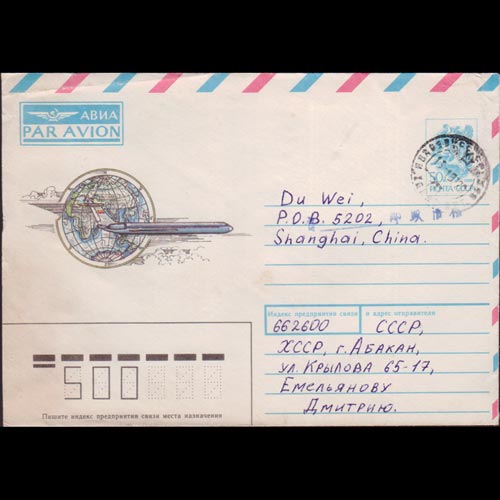 АВИА
PAR AVION
50к
ПОЧТА СССР
Du Wei,
P.O.B. 5202,
Shanghai, China.
Индекс предприятия связи и адрес отправителя
662600 СССР,
ХССР, г. Абакан,
ул. Крылова 65-17,
Емельянову
Дмитрию.
500
Пишите индекс предприятия связи места назначения